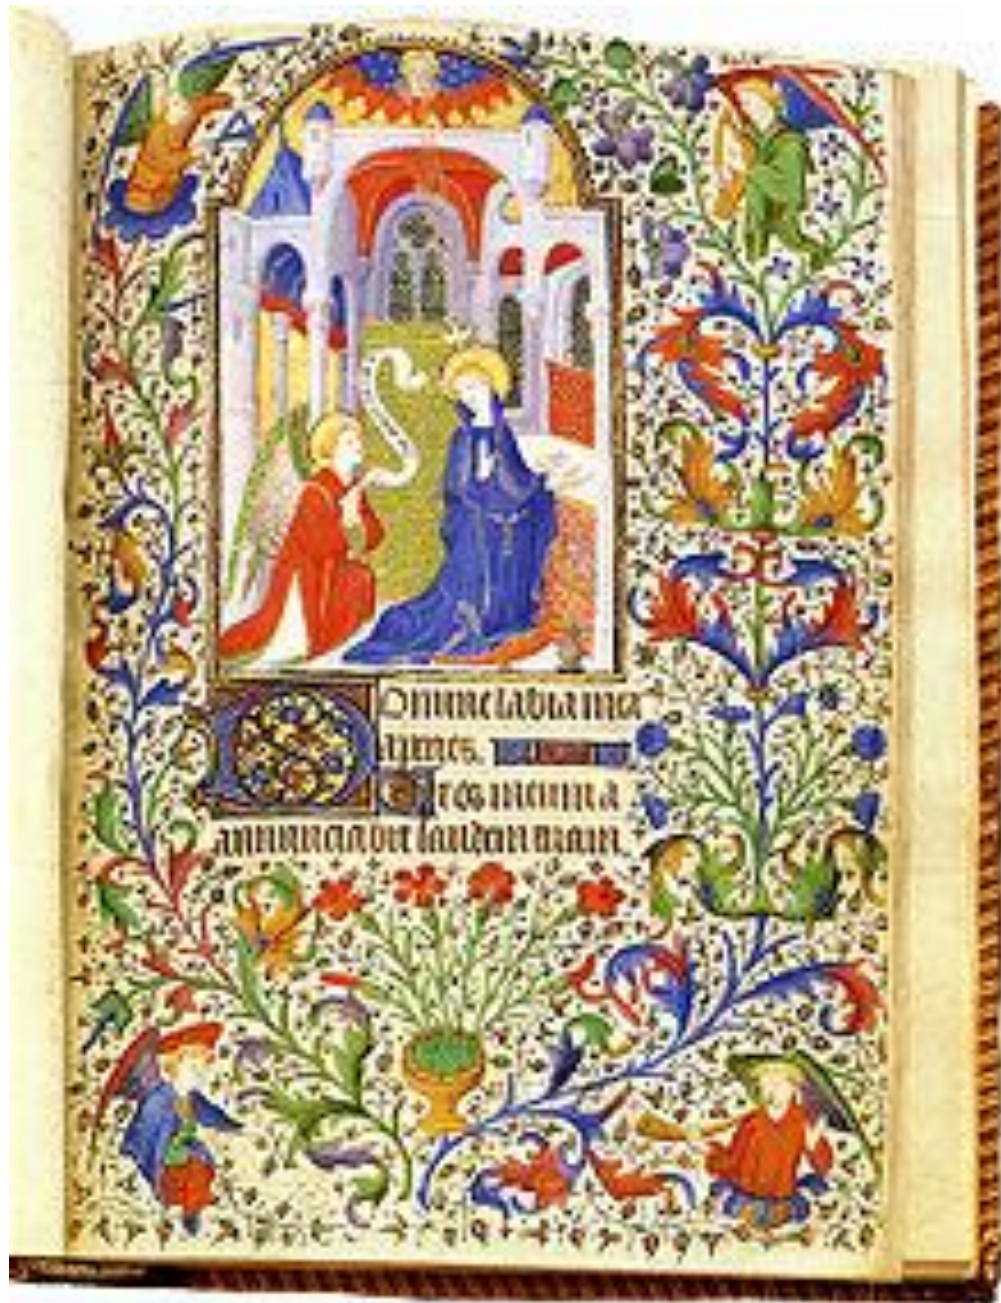 Domine labia mea
aperies.
Et os meum a
nnunciabit laudem tuam